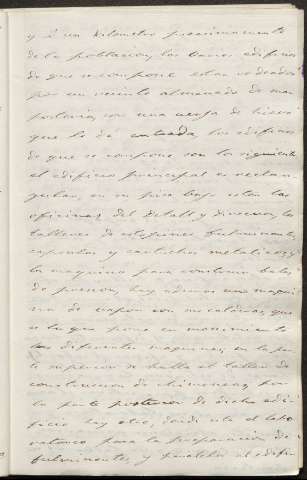 y á un kilometro proximamente
de la poblacion, los varios edificios
de que se compone estan rodeados
por un recinto almenado de mam
posteria, con una verja de hierro
que le dá entrada, los edificios
de que se compone son los siguientes
el edificio principal es rectan
gular, en su piso bajo estan las
oficinas del Detall y direccion, los
talleres de estopines fulminantes,
capsulas y cartuchos metalicos, y
las maquinas para construir balas
de presion, hay ademas una maqui
na de vapor con su caldera, que
es la que pone en movimiento
las diferentes maquinas; en la par
te superior se halla el taller de
construccion de chimeneas, por
la parte posterior de dicho edi
ficio hay otro, donde esta el labo
ratorio para la preparacion de
fulminantes, y paralelo al edifi